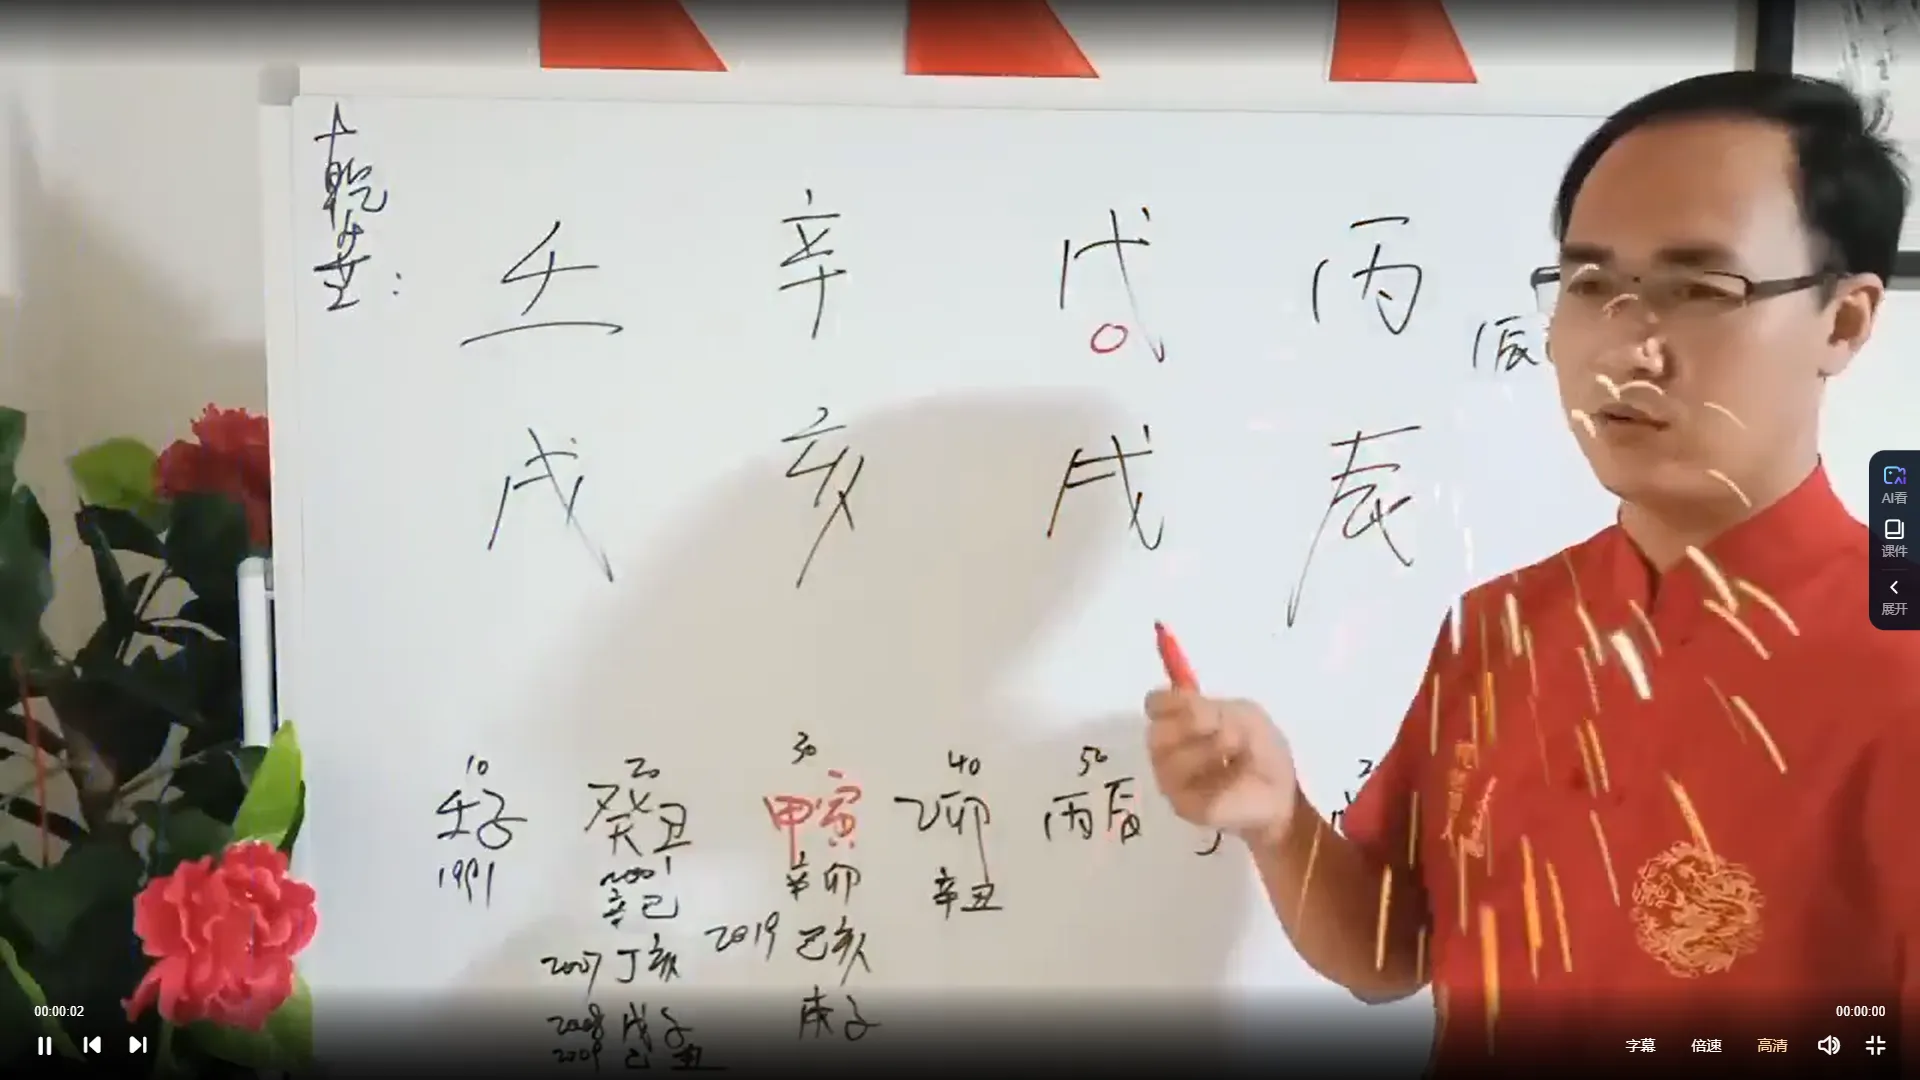 乾造：
壬 辛 戊 丙
辰
戌 亥 戌 辰
10 20 30 40 50
壬子 癸丑 甲寅 乙卯 丙辰
1991 2001 辛卯 辛丑
辛巳
2007 丁亥 2019 己亥
2008 戊子 庚子
2009 己丑
AI看
课件
展开
00:00:02
00:00:00
字幕 倍速 高清